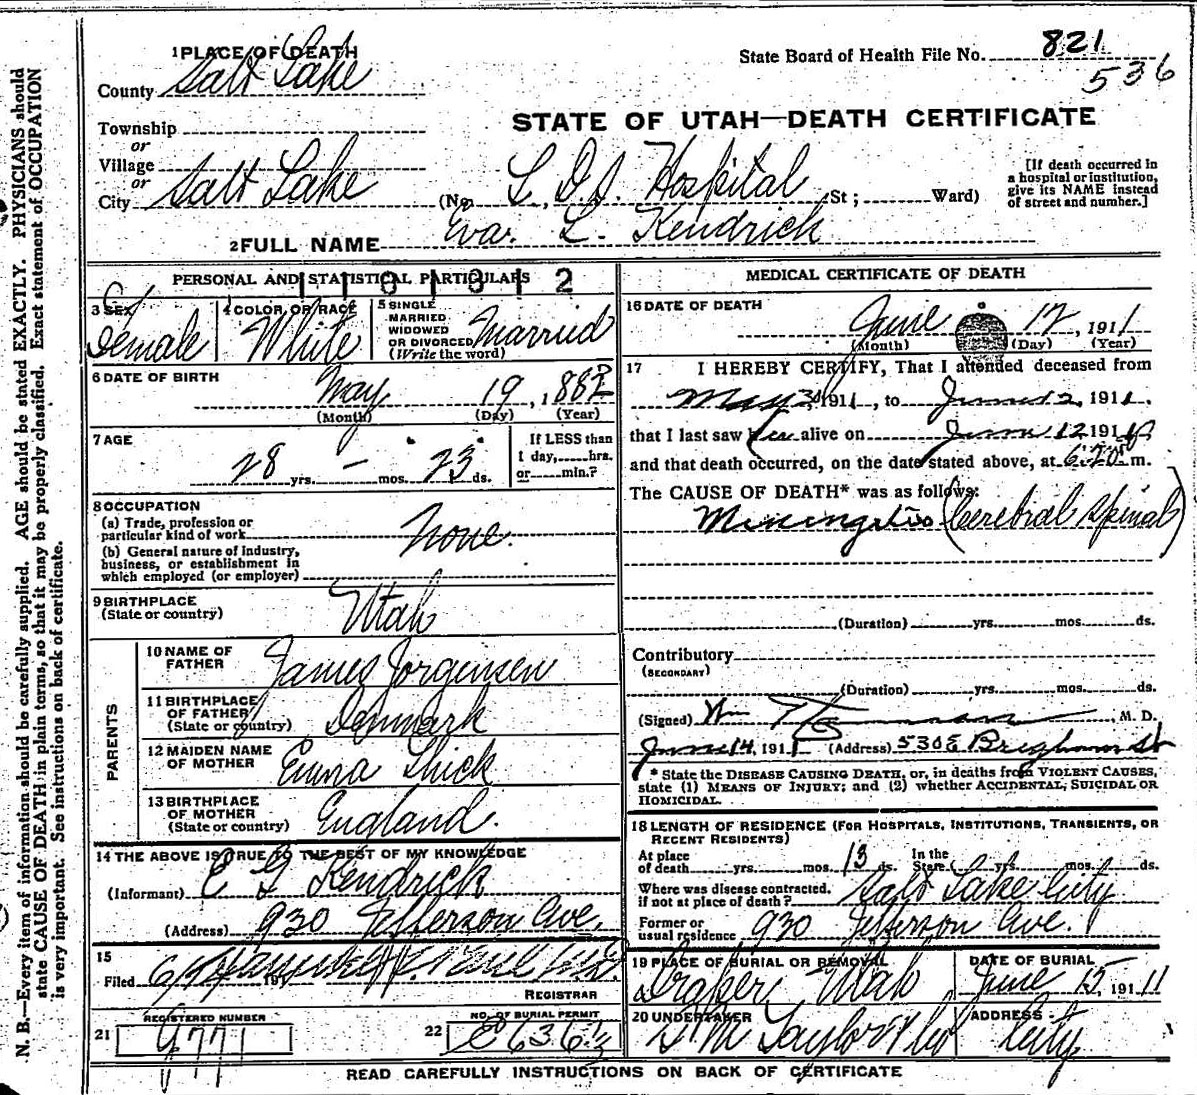 1 PLACE OF DEATH
County Salt Lake
State Board of Health File No. 821
536
Township
or
Village
or
City Salt Lake
STATE OF UTAH—DEATH CERTIFICATE
(No. L. D. S. Hospital St; Ward)
[If death occurred in
a hospital or institution,
give its NAME instead
of street and number.]
2 FULL NAME Eva. L. Kendrick
PERSONAL AND STATISTICAL PARTICULARS
3 SEX
Female
4 COLOR OR RACE
White
5 SINGLE
MARRIED
WIDOWED
OR DIVORCED
(Write the word)
Married
6 DATE OF BIRTH
May 19, 1882
(Month) (Day) (Year)
7 AGE
28 yrs. — mos. 23 ds.
If LESS than
1 day, hrs.
or min.?
8 OCCUPATION
(a) Trade, profession or
particular kind of work
(b) General nature of industry,
business, or establishment in
which employed (or employer)
None.
9 BIRTHPLACE
(State or country)
Utah
PARENTS
10 NAME OF
FATHER
James Jorgensen
11 BIRTHPLACE
OF FATHER
(State or country)
Denmark
12 MAIDEN NAME
OF MOTHER
Emma Shick
13 BIRTHPLACE
OF MOTHER
(State or country)
England.
14 THE ABOVE IS TRUE TO THE BEST OF MY KNOWLEDGE
(Informant) E G Kendrick
(Address) 930 Jefferson Ave.
15
Filed 191
REGISTRAR
21 REGISTERED NUMBER
9771
22 NO. OF BURIAL PERMIT
MEDICAL CERTIFICATE OF DEATH
16 DATE OF DEATH
June 12, 1911
(Month) (Day) (Year)
17 I HEREBY CERTIFY, That I attended deceased from
May 30, 1911, to June 12, 1911.
that I last saw her alive on June 12 191
and that death occurred, on the date stated above, at 6:20 m.
The CAUSE OF DEATH* was as follows:
Miningitis (Cerebral Spinal)
(Duration) yrs. mos. ds.
Contributory
(SECONDARY)
(Duration) yrs. mos. ds.
(Signed) Wm , M. D.
June 14, 1911 (Address) 530 E Brigham St
* State the DISEASE CAUSING DEATH, or, in deaths from VIOLENT CAUSES,
state (1) MEANS OF INJURY; and (2) whether ACCIDENTAL, SUICIDAL OR
HOMICIDAL.
18 LENGTH OF RESIDENCE (FOR HOSPITALS, INSTITUTIONS, TRANSIENTS, OR
RECENT RESIDENTS)
At place
of death yrs. mos. 13 ds. In the
State yrs. mos. ds.
Where was disease contracted,
if not at place of death? Salt Lake City
Former or
usual residence 930 Jefferson Ave.
19 PLACE OF BURIAL OR REMOVAL
Draper, Utah
DATE OF BURIAL
June 15, 1911
20 UNDERTAKER
S M Taylor & Co
ADDRESS
City
READ CAREFULLY INSTRUCTIONS ON BACK OF CERTIFICATE
N. B.—Every item of information should be carefully supplied. AGE should be stated EXACTLY. PHYSICIANS should
state CAUSE OF DEATH in plain terms, so that it may be properly classified. Exact statement of OCCUPATION
is very important. See instructions on back of certificate.